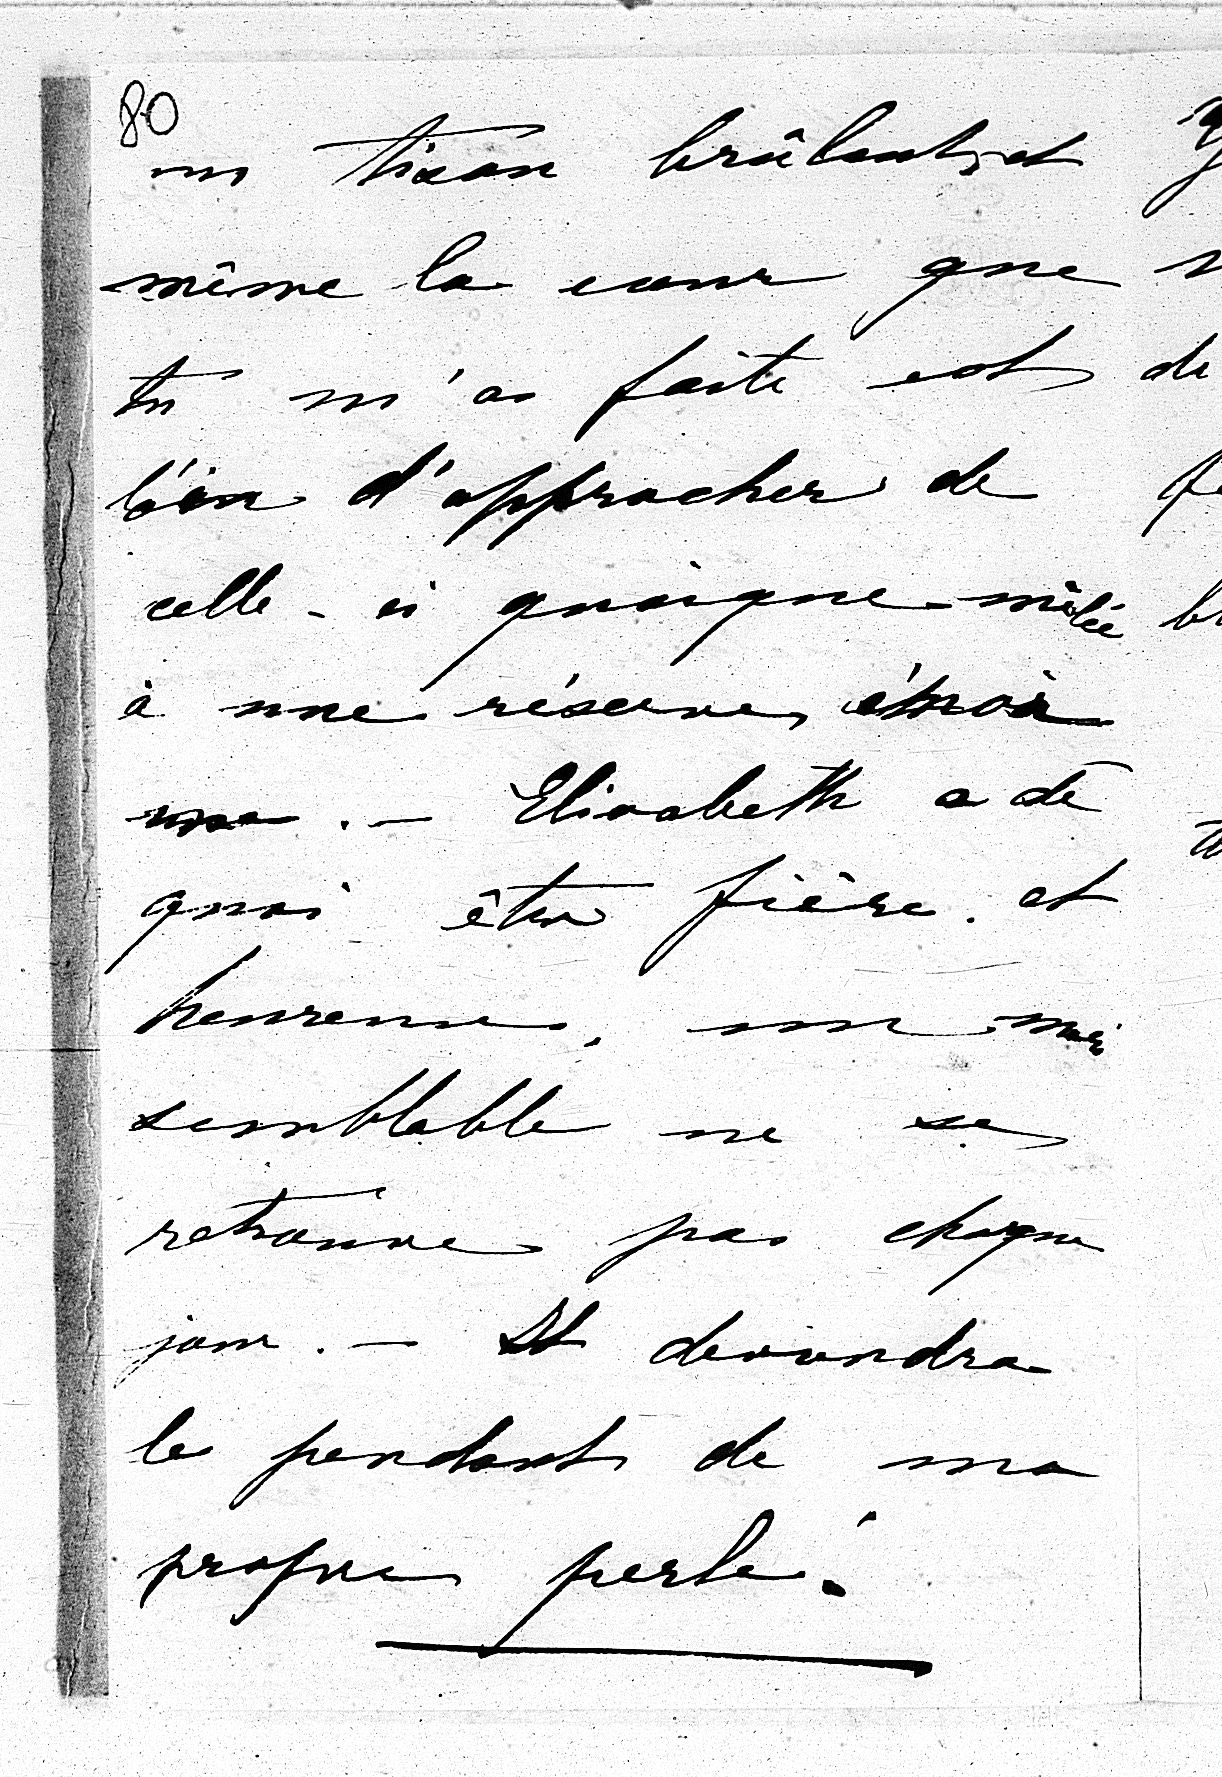 80
un tison brûlant, et
même la cour que
tu m'as faite est
loin d'approcher de
celle-ci quoique mêlée
à une réserve
. — Elisabeth a de
quoi être fière et
heureuse, un mari
semblable ne se
retrouve pas chaque
jour. — Il deviendra
le pendant de ma
propre perle!